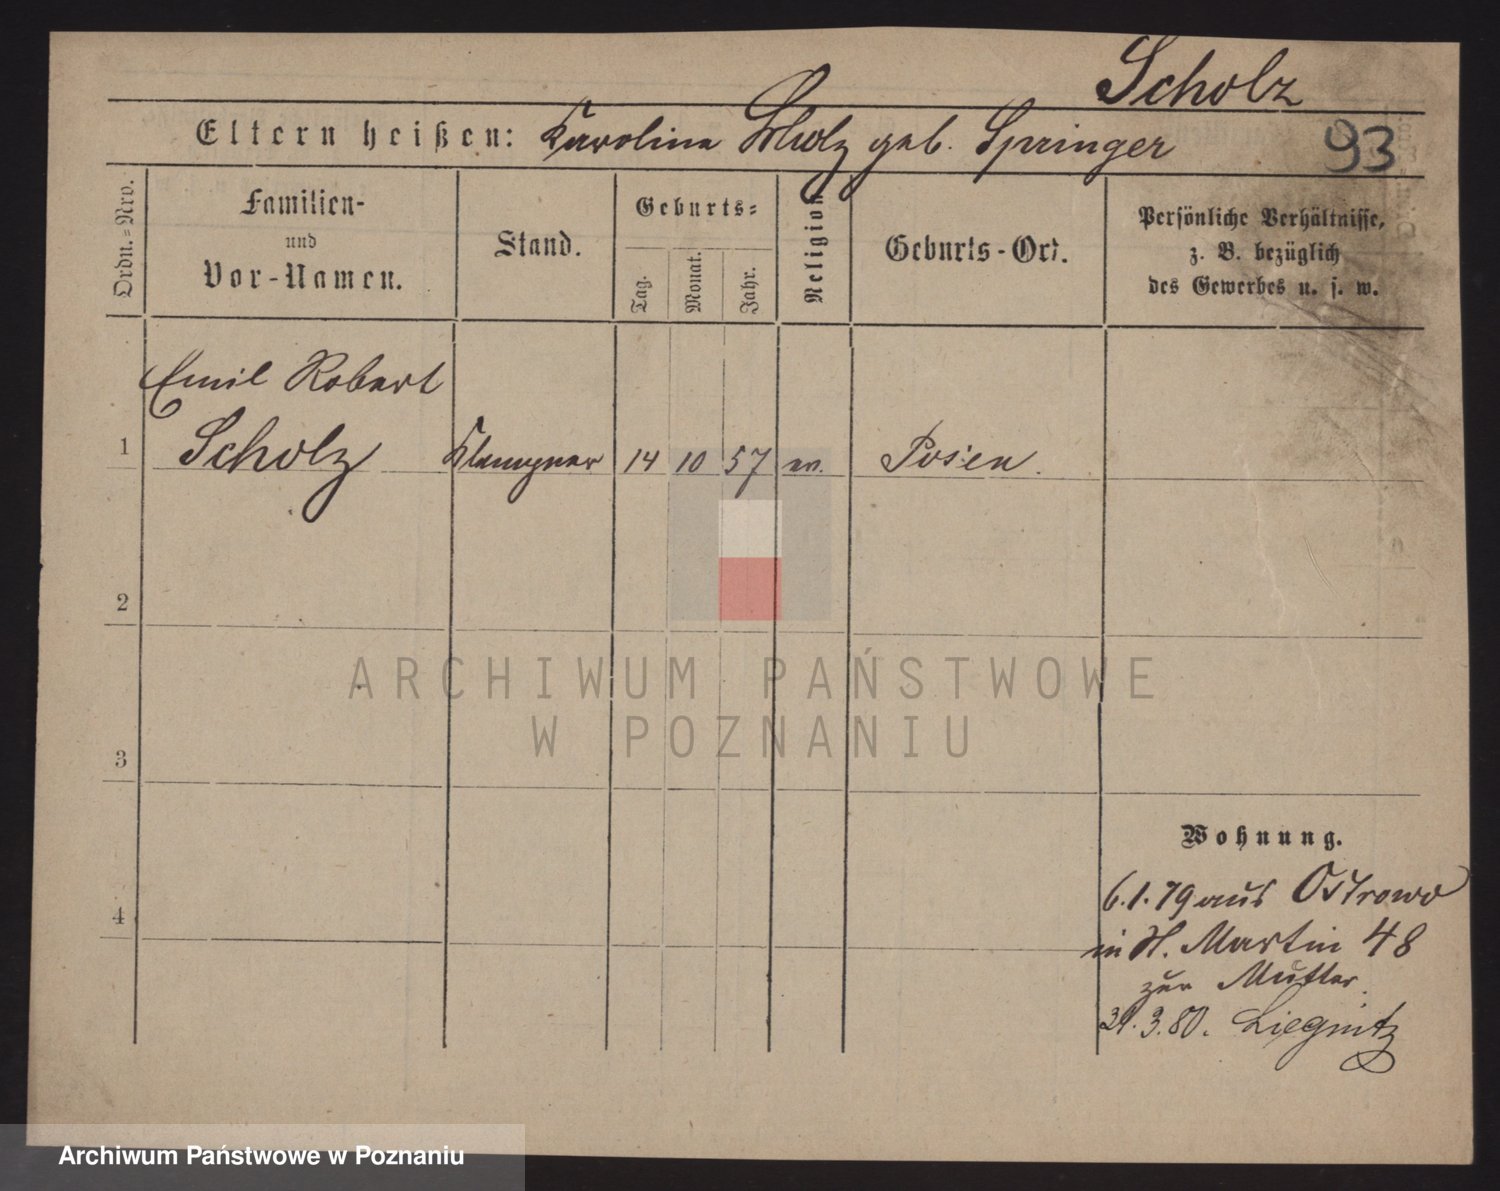 Scholz
Eltern heißen: Karoline Scholz geb. Springer
93
Ordn.-Nro.
Familien-
und
Vor-Namen.
Stand.
Geburts-
Tag.
Monat.
Jahr.
Religion
Geburts-Ort.
Persönliche Verhältnisse,
z. B. bezüglich
des Gewerbes u. s. w.
Emil Robert
1 Scholz Klempner 14 10 57 ev. Posen.
2
3
4
Wohnung.
6.1.79 aus Ostrowo
in St. Martin 48
zur Mutter.
31.3.80. Liegnitz
ARCHIWUM PAŃSTWOWE
W POZNANIU
Archiwum Państwowe w Poznaniu